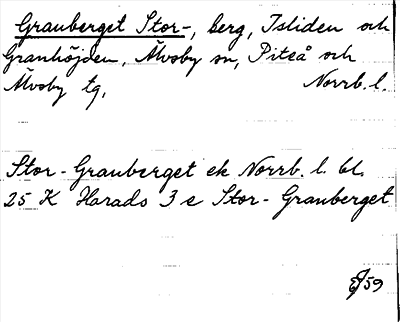 Granberget Stor-, berg, Isliden och
Granhöjden, Älvsby sn, Piteå och
Älvsby tg, Norrb. l.
Stor-Granberget ek Norrb. l. bl.
25 K Harads 3 e Stor-Granberget
59